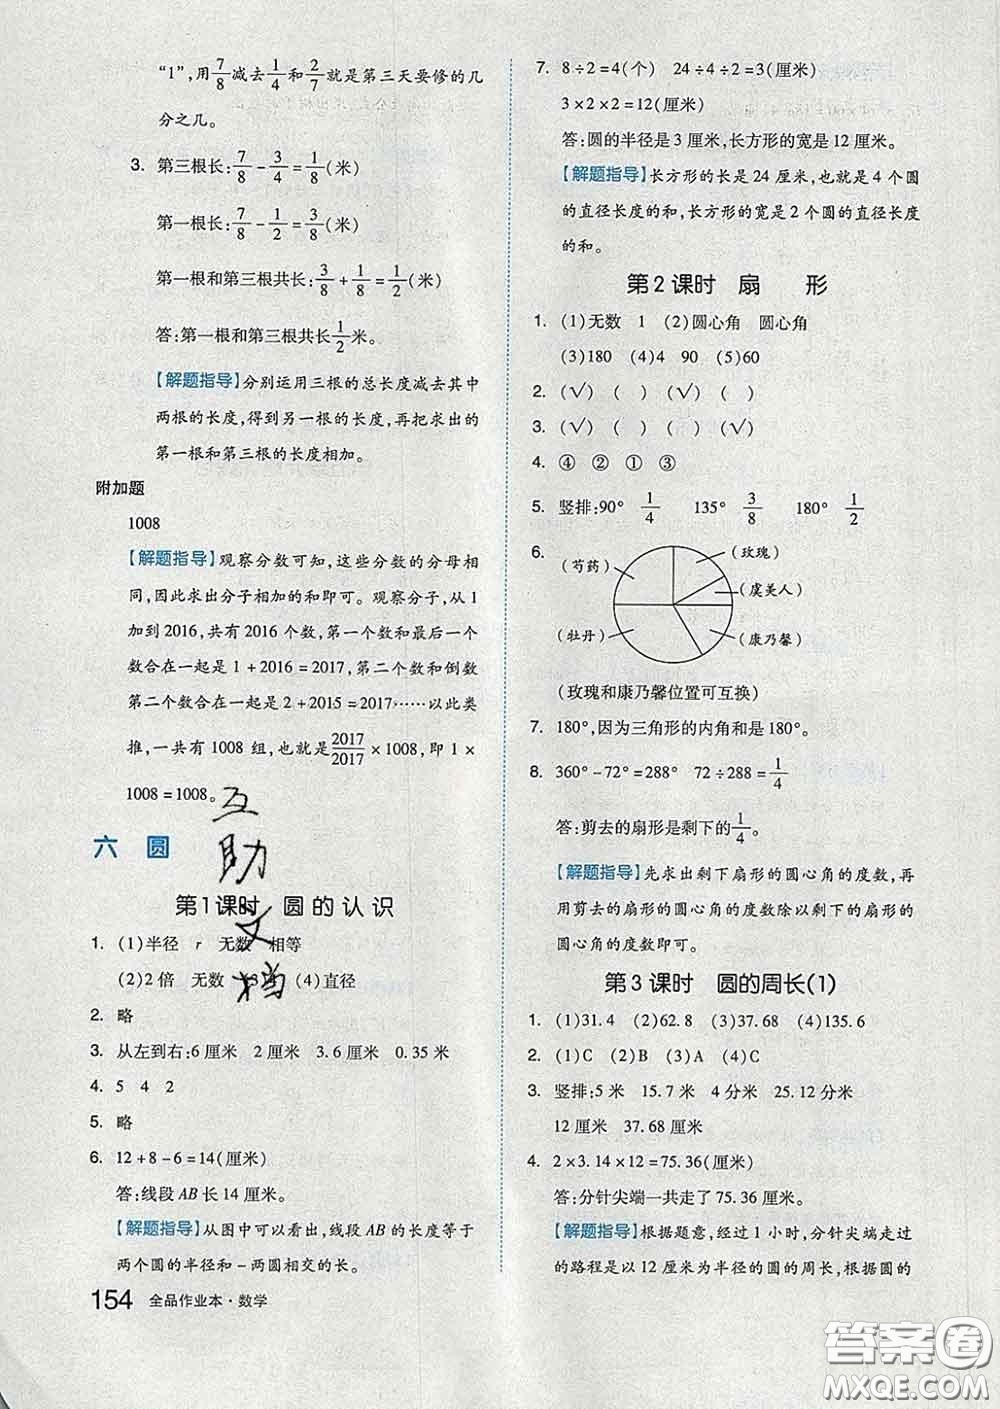 “1”,用7/8减去1/4和2/7就是第三天要修的几
分之几。
3. 第三根长:7/8-3/4=1/8(米)
第一根长:7/8-1/2=3/8(米)
第一根和第三根共长:3/8+1/8=1/2(米)
答:第一根和第三根共长1/2米。
【解题指导】分别运用三根的总长度减去其中
两根的长度,得到另一根的长度,再把求出的
第一根和第三根的长度相加。
附加题
1008
【解题指导】观察分数可知,这些分数的分母相
同,因此求出分子相加的和即可。观察分子,从1
加到2016,共有2016个数,第一个数和最后一个
数合在一起是1+2016=2017,第二个数和倒数
第二个数合在一起是2+2015=2017……以此类
推,一共有1008组,也就是2017/2017×1008,即1×
1008=1008。
六 圆
第1课时 圆的认识
1. (1)半径 r 无数 相等
(2)2倍 无数 (4)直径
2. 略
3. 从左到右:6厘米 2厘米 3.6厘米 0.35米
4. 5 4 2
5. 略
6. 12+8-6=14(厘米)
答:线段AB长14厘米。
【解题指导】从图中可以看出,线段AB的长度等于
两个圆的半径和-两圆相交的长。
154 全品作业本·数学
互
助
文
档
7. 8÷2=4(个) 24÷4÷2=3(厘米)
3×2×2=12(厘米)
答:圆的半径是3厘米,长方形的宽是12厘米。
【解题指导】长方形的长是24厘米,也就是4个圆
的直径长度的和,长方形的宽是2个圆的直径长度
的和。
第2课时 扇 形
1. (1)无数 1 (2)圆心角 圆心角
(3)180 (4)4 90 (5)60
2. (√) ( ) (√) ( )
3. (√) ( ) ( ) (√)
4. ④ ② ① ③
5. 竖排:90° 1/4 135° 3/8 180° 1/2
6.
(芍药)
(玫瑰)
(虞美人)
(牡丹)
(康乃馨)
(玫瑰和康乃馨位置可互换)
7. 180°,因为三角形的内角和是180°。
8. 360°-72°=288° 72÷288=1/4
答:剪去的扇形是剩下的1/4。
【解题指导】先求出剩下扇形的圆心角的度数,再
用剪去的扇形的圆心角的度数除以剩下的扇形的
圆心角的度数即可。
第3课时 圆的周长(1)
1. (1)31.4 (2)62.8 (3)37.68 (4)135.6
2. (1)C (2)B (3)A (4)C
3. 竖排:5米 15.7米 4分米 25.12分米
12厘米 37.68厘米
4. 2×3.14×12=75.36(厘米)
答:分针尖端一共走了75.36厘米。
【解题指导】根据题意,经过1小时,分针尖端走过
的路程是以12厘米为半径的圆的周长,根据圆的
答案圈
MXQE.COM